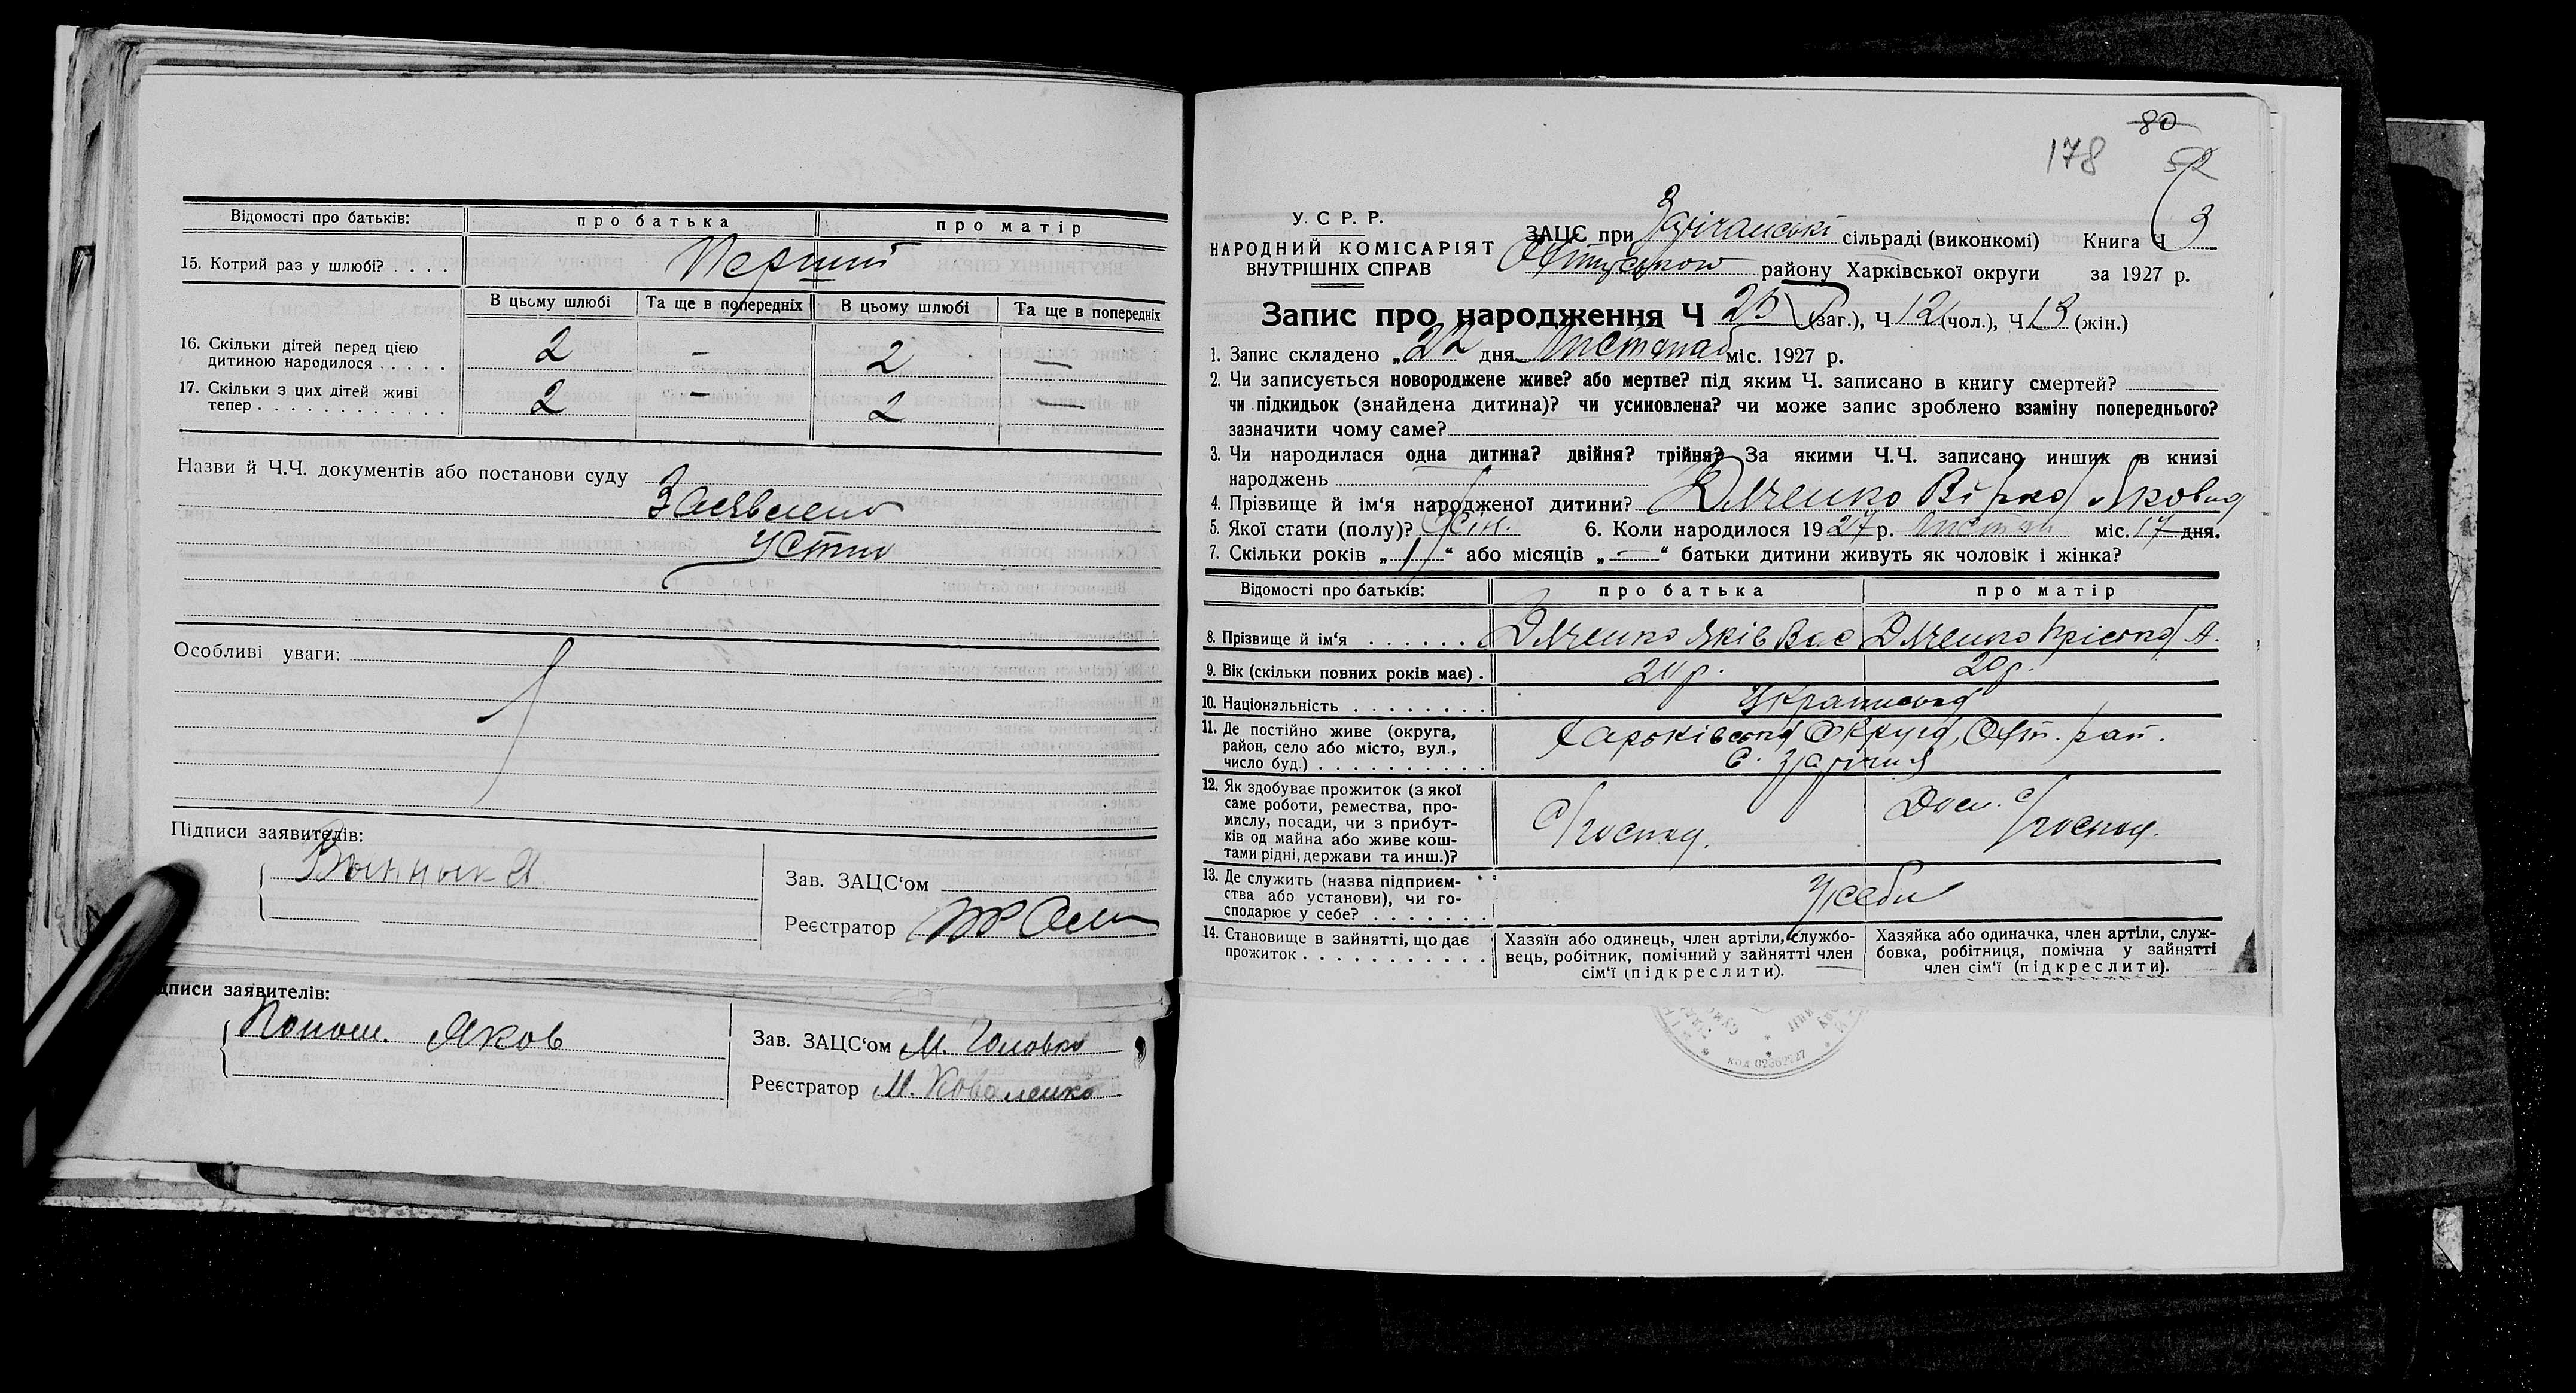 Відомості про батьків: про батька про матір
15. Котрий раз у шлюбі? . . . . Перший
В цьому шлюбі Та ще в попередніх В цьому шлюбі Та ще в попередніх
16. Скільки дітей перед цією
дитиною народилося . . . . . 2 – 2 —
17. Скільки з цих дітей живі
тепер . . . . . . . . . . . . 2 – 2 —
Назви й Ч.Ч. документів або постанови суду
Заявлено
Устно
Особливі уваги:
Підписи заявителів:
Зав. ЗАЦС‘ом
Реєстратор
дписи заявителів:
Яков
Зав. ЗАЦС‘ом М. Головко
Реєстратор М. Коваленко
80
178 52
У. С. Р. Р.
НАРОДНИЙ КОМІСАРІЯТ
ВНУТРІШНІХ СПРАВ
ЗАЦС при сільраді (виконкомі) Книга Ч 3
району Харківської округи за 1927 р.
Запис про народження Ч 25 (заг.), Ч 12 (чол.), Ч 13 (жін.)
1. Запис складено „22 дня Листопад міс. 1927 р.
2. Чи записується новороджене живе? або мертве? під яким Ч. записано в книгу смертей?
чи підкидьок (знайдена дитина)? чи усиновлена? чи може запис зроблено взаміну попереднього?
зазначити чому саме?
3. Чи народилася одна дитина? двійня? трійня? За якими Ч.Ч. записано инших в книзі
народжень
4. Прізвище й ім‘я народженої дитини? Дяченко Вірка Яковна
5. Якої стати (полу)? Жін. 6. Коли народилося 1927 р. Листоп міс. 17 дня.
7. Скільки років „1“ або місяців „—“ батьки дитини живуть як чоловік і жінка?
Відомості про батьків: про батька про матір
8. Прізвище й ім‘я . . . . . . Дяченко Яків Вас Дяченко Крістка А.
9. Вік (скільки повних років має) . 20р.
10. Національність . . . . . . . .
11. Де постійно живе (округа,
район, село або місто, вул.,
число буд.) . . . . . . . . . . Харківська Округа, Охт. рай.
с. Зарічня
12. Як здобуває прожиток (з якої
саме роботи, ремества, про-
мислу, посади, чи з прибут-
ків од майна або живе кош-
тами рідні, держави та инш.)?
с/господ. Дом. с/господ.
13. Де служить (назва підприєм-
ства або установи), чи го-
сподарює у себе? . . . . . . . У себе
14. Становище в зайнятті, що дає
прожиток . . . . . . . . . . . .
Хазяїн або одинець, член артіли, службо-
вець, робітник, помічний у зайнятті член
сім‘ї (підкреслити).
Хазяйка або одиначка, член артіли, служ-
бовка, робітниця, помічна у зайнятті
член сім‘ї (підкреслити).